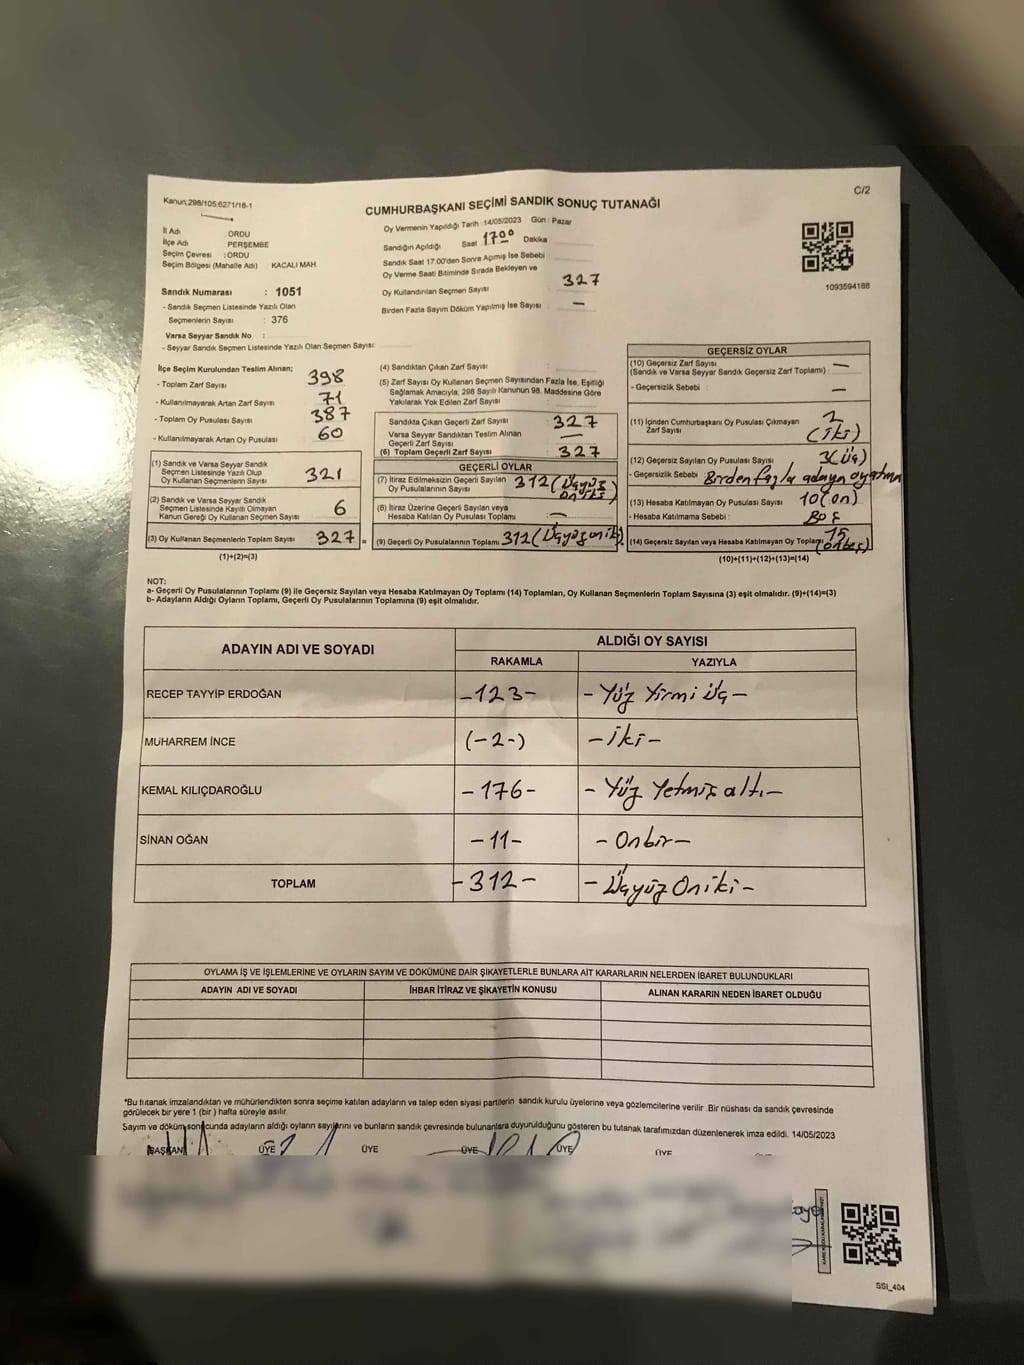 Kanun;298/105;6271/18-1
C/2
CUMHURBAŞKANI SEÇİMİ SANDIK SONUÇ TUTANAĞI
İl Adı : ORDU
İlçe Adı : PERŞEMBE
Seçim Çevresi : ORDU
Seçim Bölgesi (Mahalle Adı) : KACALI MAH.
Sandık Numarası : 1051
- Sandık Seçmen Listesinde Yazılı Olan
Seçmenlerin Sayısı : 376
Varsa Seyyar Sandık No :
- Seyyar Sandık Seçmen Listesinde Yazılı Olan Seçmen Sayısı:
Oy Vermenin Yapıldığı Tarih :14/05/2023 Gün : Pazar
Sandığın Açıldığı Saat 17⁰⁰ Dakika
Sandık Saat 17.00'den Sonra Açılmış İse Sebebi :
Oy Verme Saati Bitiminde Sırada Bekleyen ve
Oy Kullandırılan Seçmen Sayısı : 327
Birden Fazla Sayım Döküm Yapılmış İse Sayısı : —
1093594188
İlçe Seçim Kurulundan Teslim Alınan;
- Toplam Zarf Sayısı : 398
- Kullanılmayarak Artan Zarf Sayısı : 71
- Toplam Oy Pusulası Sayısı : 387
- Kullanılmayarak Artan Oy Pusulası : 60
(1) Sandık ve Varsa Seyyar Sandık
Seçmen Listesinde Yazılı Olup
Oy Kullanan Seçmenlerin Sayısı : 321
(2) Sandık ve Varsa Seyyar Sandık
Seçmen Listesinde Kayıtlı Olmayan
Kanun Gereği Oy Kullanan Seçmen Sayısı : 6
(3) Oy Kullanan Seçmenlerin Toplam Sayısı : 327 =
(1)+(2)=(3)
(4) Sandıktan Çıkan Zarf Sayısı :
(5) Zarf Sayısı Oy Kullanan Seçmen Sayısından Fazla İse, Eşitliği
Sağlamak Amacıyla; 298 Sayılı Kanunun 98. Maddesine Göre
Yakılarak Yok Edilen Zarf Sayısı :
Sandıkta Çıkan Geçerli Zarf Sayısı : 327
Varsa Seyyar Sandıktan Teslim Alınan
Geçerli Zarf Sayısı : —
(6) Toplam Geçerli Zarf Sayısı : 327
GEÇERLİ OYLAR
(7) İtiraz Edilmeksizin Geçerli Sayılan
Oy Pusulalarının Sayısı : 312 (Üçyüz oniki)
(8) İtiraz Üzerine Geçerli Sayılan veya
Hesaba Katılan Oy Pusulası Toplamı : —
(9) Geçerli Oy Pusulalarının Toplamı : 312 (Üçyüz oniki)
GEÇERSİZ OYLAR
(10) Geçersiz Zarf Sayısı
(Sandık ve Varsa Seyyar Sandık Geçersiz Zarf Toplamı) : —
- Geçersizlik Sebebi : —
(11) İçinden Cumhurbaşkanı Oy Pusulası Çıkmayan
Zarf Sayısı : 2 (iki)
(12) Geçersiz Sayılan Oy Pusulası Sayısı : 3 (Üç)
- Geçersizlik Sebebi : Birden fazla adaya oy
(13) Hesaba Katılmayan Oy Pusulası Sayısı : 10 (on)
- Hesaba Katılmama Sebebi : Boş
(14) Geçersiz Sayılan veya Hesaba Katılmayan Oy Toplamı : 15 (onbeş)
(10)+(11)+(12)+(13)=(14)
NOT:
a- Geçerli Oy Pusulalarının Toplamı (9) ile Geçersiz Sayılan veya Hesaba Katılmayan Oy Toplamı (14) Toplamları, Oy Kullanan Seçmenlerin Toplam Sayısına (3) eşit olmalıdır. (9)+(14)=(3)
b- Adayların Aldığı Oyların Toplamı, Geçerli Oy Pusulalarının Toplamına (9) eşit olmalıdır.
ADAYIN ADI VE SOYADI ALDIĞI OY SAYISI
RAKAMLA YAZIYLA
RECEP TAYYİP ERDOĞAN -123- - Yüz Yirmi Üç -
MUHARREM İNCE (-2-) - iki -
KEMAL KILIÇDAROĞLU - 176 - - Yüz Yetmiş altı -
SİNAN OĞAN - 11 - - Onbir -
TOPLAM - 312 - - Üçyüz Oniki -
OYLAMA İŞ VE İŞLEMLERİNE VE OYLARIN SAYIM VE DÖKÜMÜNE DAİR ŞİKAYETLERLE BUNLARA AİT KARARLARIN NELERDEN İBARET BULUNDUKLARI
ADAYIN ADI VE SOYADI İHBAR İTİRAZ VE ŞİKAYETİN KONUSU ALINAN KARARIN NEDEN İBARET OLDUĞU
*Bu tutanak imzalandıktan ve mühürlendikten sonra seçime katılan adayların ve talep eden siyasi partilerin sandık kurulu üyelerine veya gözlemcilerine verilir .Bir nüshası da sandık çevresinde
görülecek bir yere 1 (bir ) hafta süreyle asılır.
Sayım ve döküm sonucunda adayların aldığı oyların sayılarını ve bunların sandık çevresinde bulunanlara duyurulduğunu gösteren bu tutanak tarafımızdan düzenlenerek imza edildi. 14/05/2023
BAŞKAN ÜYE ÜYE ÜYE ÜYE ÜYE
SSİ_404